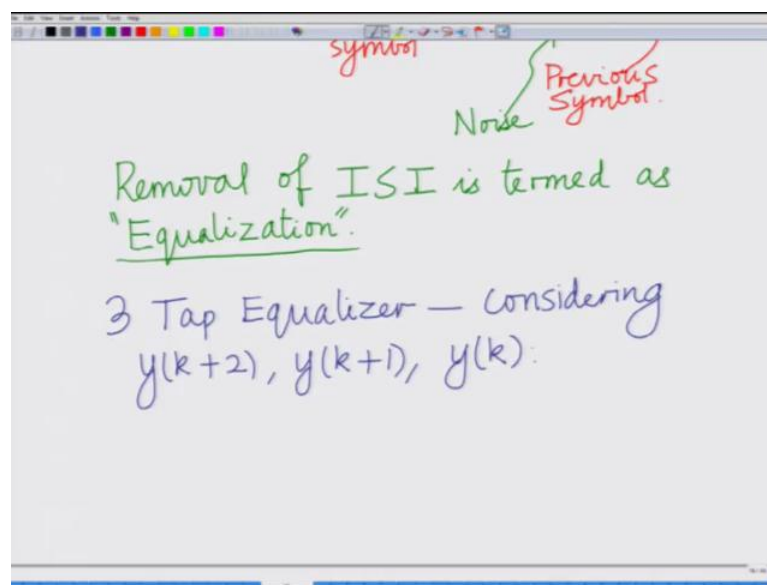 symbol
Previous
Symbol.
Noise
Removal of ISI is termed as
"Equalization".
3 Tap Equalizer — considering
y(k+2), y(k+1), y(k):